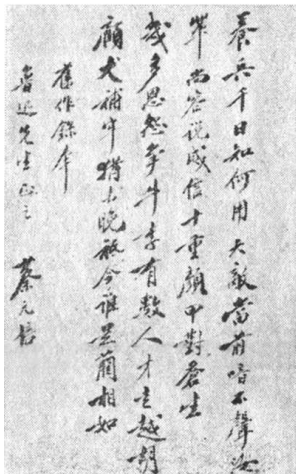 養兵千日知何用大敵當前喑不聲汝
輩尚容說威信十重顏甲對蒼生
幾多恩怨爭牛李有數人才走越胡
顧犬補牢猶未晚祇今誰是藺相如
舊作錄奉
魯迅先生正之 蔡元培